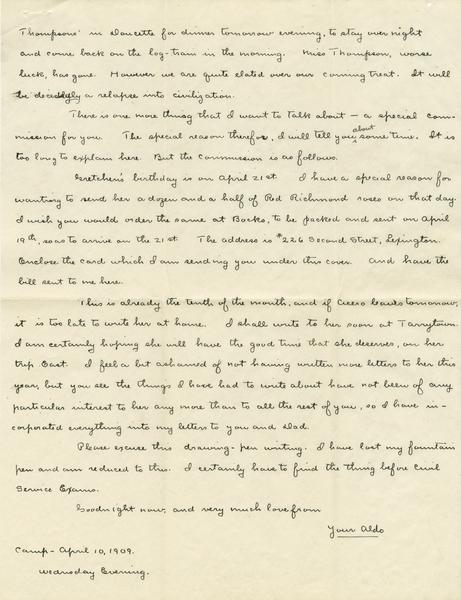 Thompsons' in Doucette for dinner tomorrow evening, to stay over night
and come back on the log-train in the morning. Miss Thompson, worse
luck, has gone. However we are quite elated over our coming treat. It will
be decidedly a relapse into civilization.
There is one more thing that I want to talk about — a special com-
mission for you. The special reason therefor, I will tell you about some time. It is
too long to explain here. But the commission is as follows.
Gretchen's birthday is on April 21st. I have a special reason for
wanting to send her a dozen and a half of Red Richmond roses on that day.
I wish you would order the same at Bocks, to be packed and sent on April
19th, so as to arrive on the 21st. The address is #226 Second Street, Lexington.
Enclose the card which I am sending you under this cover. And have the
bill sent to me here.
This is already the tenth of the month, and if Cicero leaves tomorrow,
it is too late to write her at home. I shall write to her soon at Tarrytown.
I am certainly hoping she will have the good time that she deserves, on her
trip East. I feel a bit ashamed of not having written more letters to her this
year, but you see the things I have had to write about have not been of any
particular interest to her any more than to all the rest of you, so I have in-
corporated everything into my letters to you and Dad.
Please excuse this drawing-pen writing. I have lost my fountain
pen and am reduced to this. I certainly have to find the thing before Civil
Service Exams.
Goodnight now, and very much love from
Your Aldo
Camp - April 10, 1909.
Wednesday Evening.